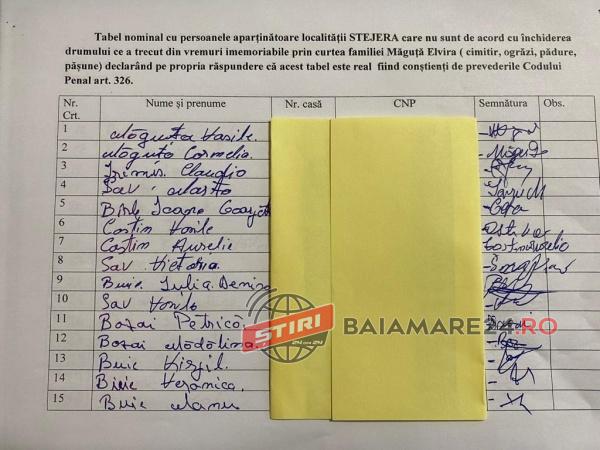 Tabel nominal cu persoanele aparținătoare localității STEJERA care nu sunt de acord cu închiderea
drumului ce a trecut din vremuri imemoriabile prin curtea familiei Măguță Elvira ( cimitir, ogrăzi, pădure,
pășune) declarând pe propria răspundere că acest tabel este real fiind conștienți de prevederile Codului
Penal art. 326.
Nr. Crt. Nume și prenume Nr. casă CNP Semnătura Obs.
1 Măguța Vasile.
2 Măguță Cornelia.
3 Claudia
4 Sav Marta
5 Ioana
6 Costin Vasile
7 Costin Aurelia
8 Sav Victoria.
9 Buic Iulia Denisa
10 Sav Vasile
11 Bozai Petrică
12 Bozai Mădălina
13 Buic Virgil.
14 Buic Veronica.
15 Buic
STIRI
24 din 24
BAIAMARE24.RO